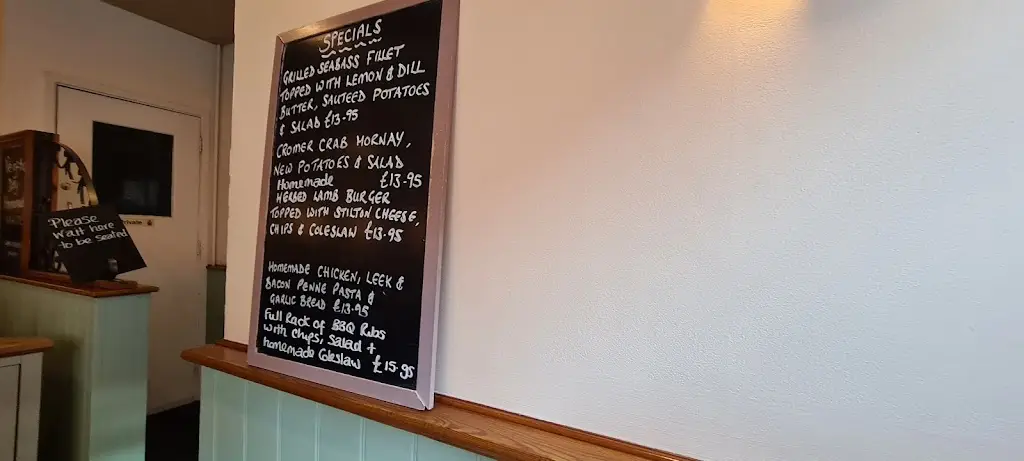 SPECIALS
GRILLED SEABASS FILLET
TOPPED WITH LEMON & DILL
BUTTER, SAUTEED POTATOES
& SALAD £13.95
CROMER CRAB MORNAY,
NEW POTATOES & SALAD
£13.95
Homemade
HERBED LAMB BURGER
TOPPED WITH STILTON CHEESE,
CHIPS & COLESLAW £13.95
HOMEMADE CHICKEN, LEEK &
BACON PENNE PASTA &
GARLIC BREAD £13.95
Full Rack of BBQ Ribs
with chips, salad +
homemade Coleslaw £15.95
Please
Wait here
to be seated
Private